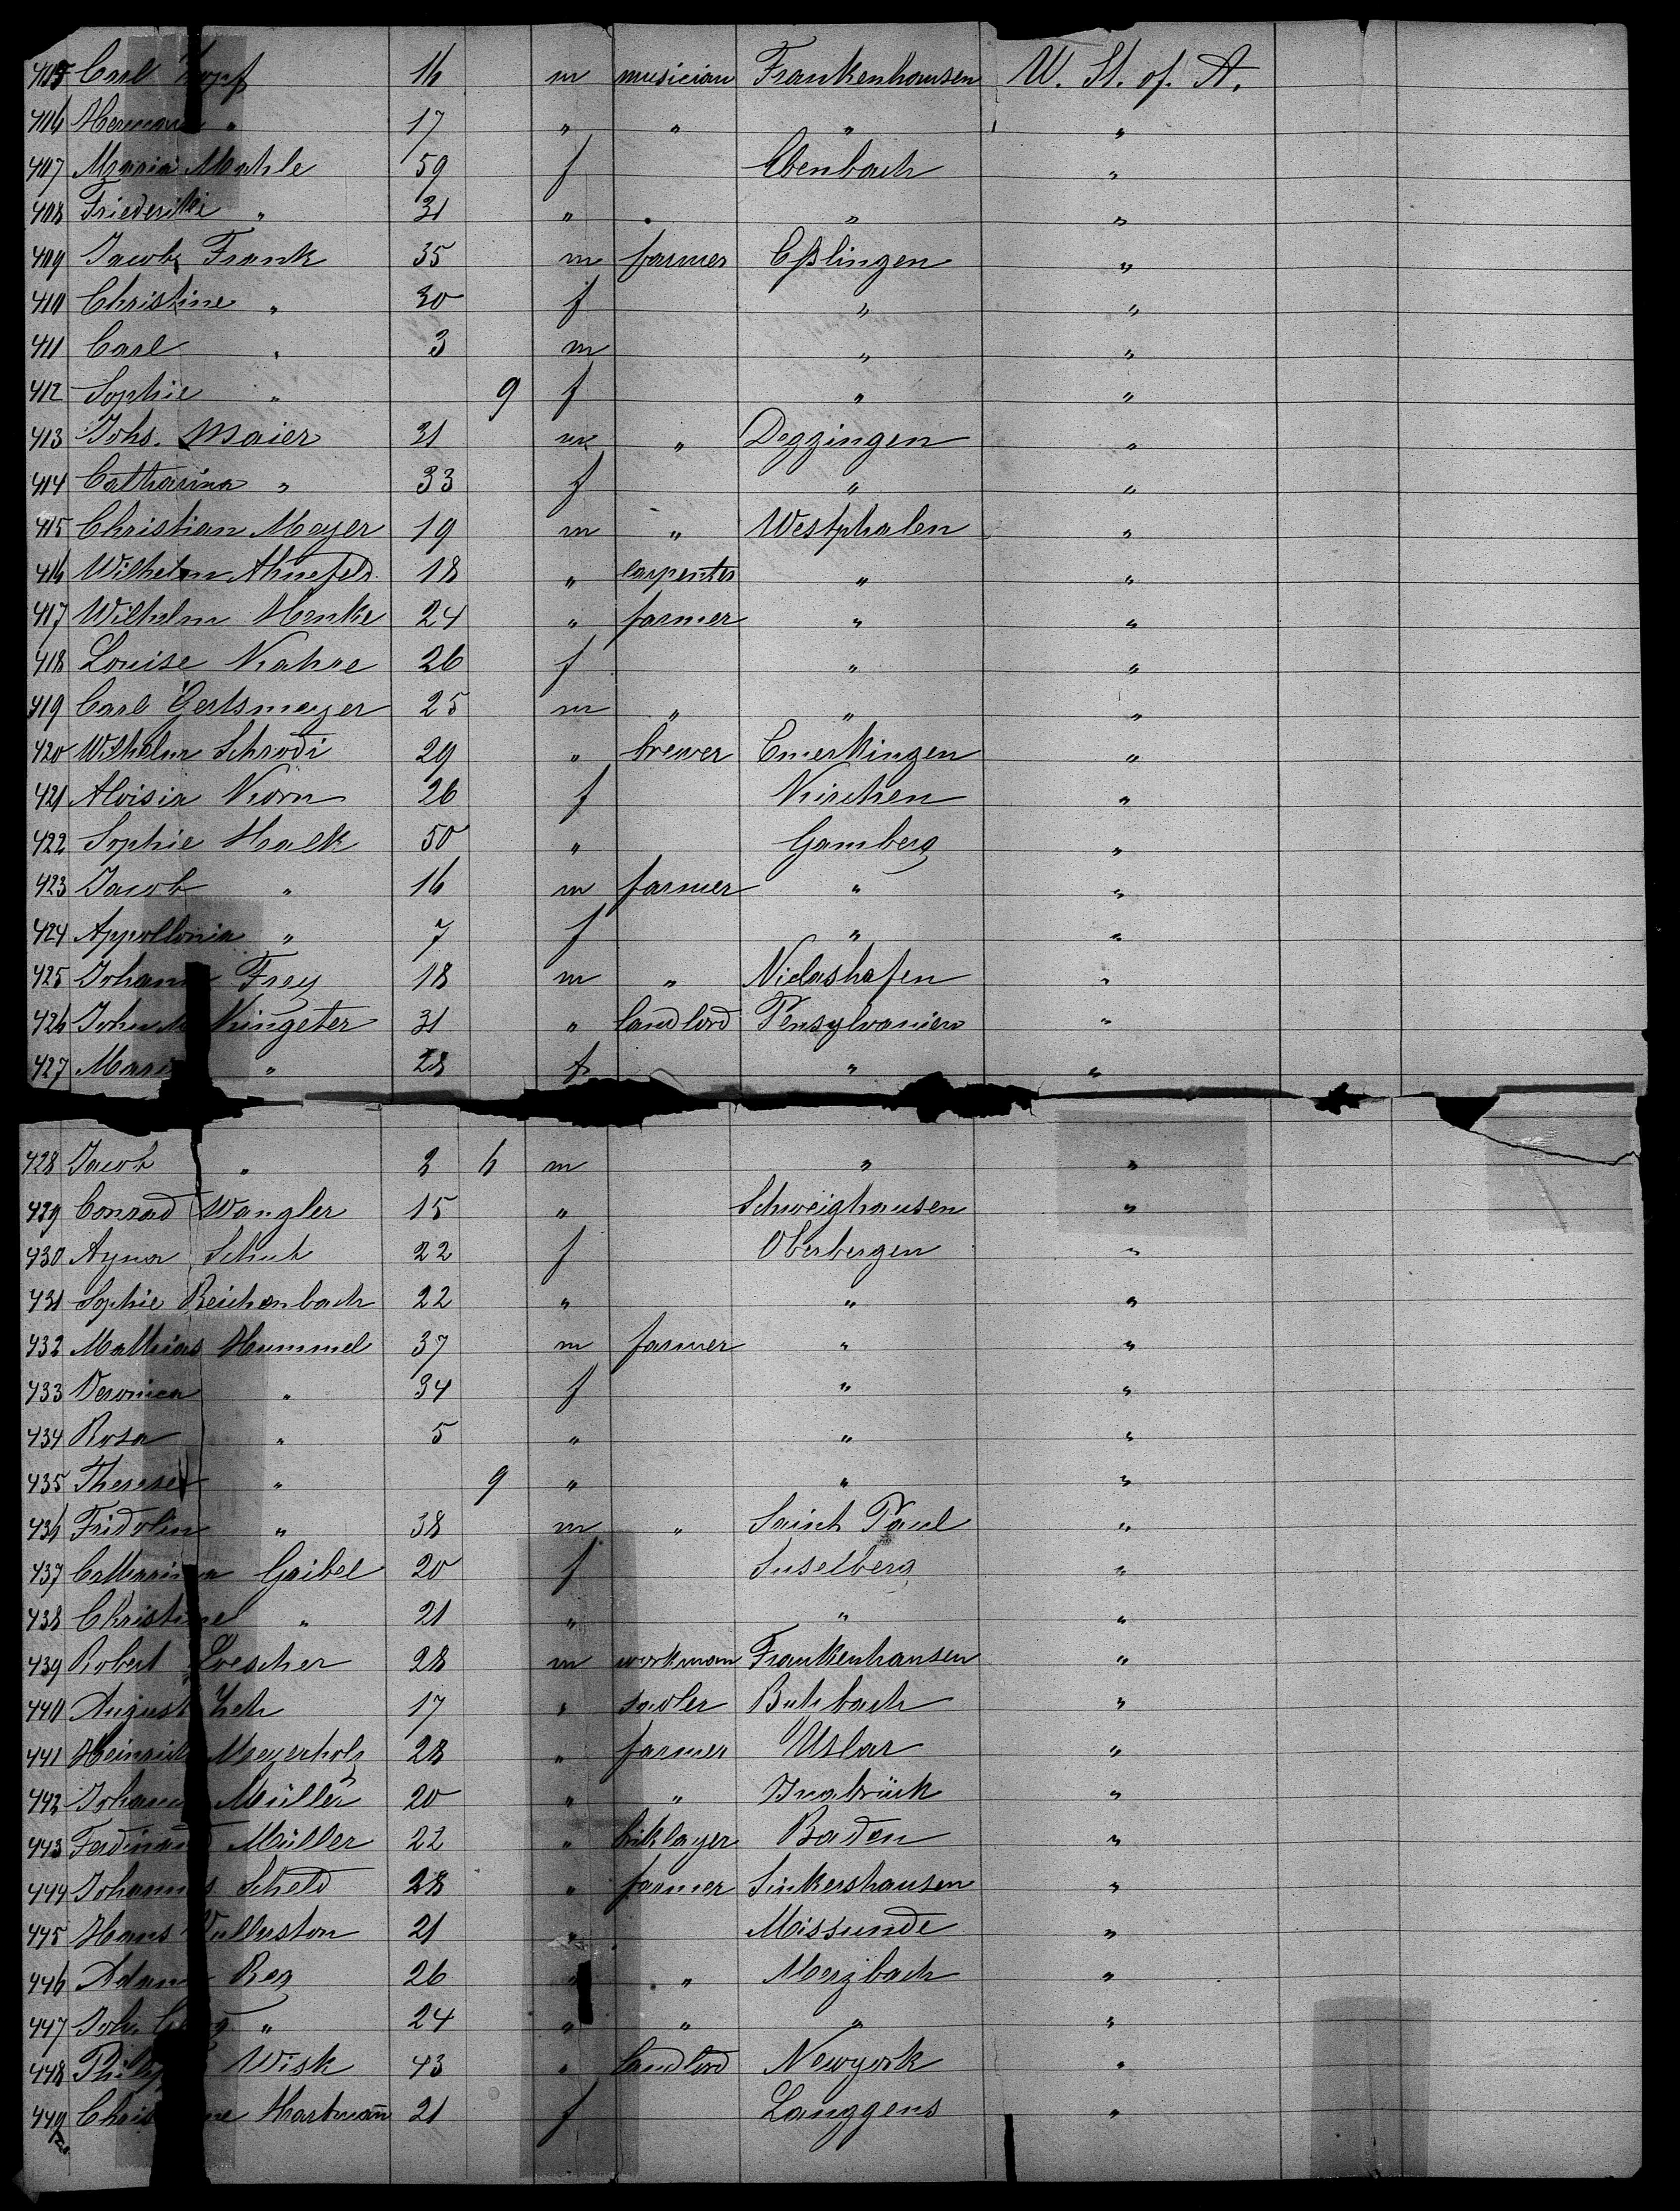 405 Carl 16 m musician Frankenhausen U. St. of. A.
406 Hermann " 17 " " " "
407 Maria Mahle 59 f Ebenbach "
408 Friederike " 31 " " "
409 Jacob Frank 35 m farmer Eßlingen "
410 Christine " 30 f " "
411 Carl " 3 m " "
412 Sophie " 9 f " "
413 Johs. Maier 31 m " Deggingen "
414 Catharina " 33 f " "
415 Christian Meyer 19 m " Westphalen "
416 Wilhelm Ahnefeld 18 " carpenter " "
417 Wilhelm Henke 24 " farmer " "
418 Louise Krahne 26 f " "
419 Carl Gertsmeyer 25 m " " "
420 Wilhelm Schrodi 29 " brewer Emerkingen "
421 Aloisia Korn 26 f Kirchen "
422 Sophie Halk 50 " Gamberg "
423 Jacob " 16 m farmer " "
424 Appollonia " 7 f " "
425 Johann Frey 18 m " Niclashafen "
426 John M. Kingeter 31 " landlord Pensylvanien "
427 Maria " 28 f " "
428 Jacob " 2 6 m " "
429 Conrad Wangler 15 " Schweighausen "
430 Agna Schuh 22 f Oberbergen "
431 Sophie Reichenbach 22 " " "
432 Mathias Hummel 37 m farmer " "
433 Veronica " 34 f " "
434 Rosa " 5 " " "
435 Therese " 9 " " "
436 Fridolin " 38 m " Sainh Paul "
437 Catharina Gaibel 20 f Inselberg "
438 Christine " 21 " " "
439 Robert Loescher 28 m workman Frankenhausen "
440 August Zeh 17 " sadler Butzbach "
441 Heinrich Meyerholz 28 " farmer Uslar "
442 Johann Müller 20 " " "
443 Ferdinand Müller 22 " briklayer Baden "
444 Johannes Scheld 28 " farmer Sinkershausen "
445 Hans 21 " Missunde "
446 Adam Reg 26 " " Merzbach "
447 Joh. Georg " 24 " " " "
448 Philipp Wisk 43 " landlord Newyork "
449 Christine Hartmañ 21 f Langgens "